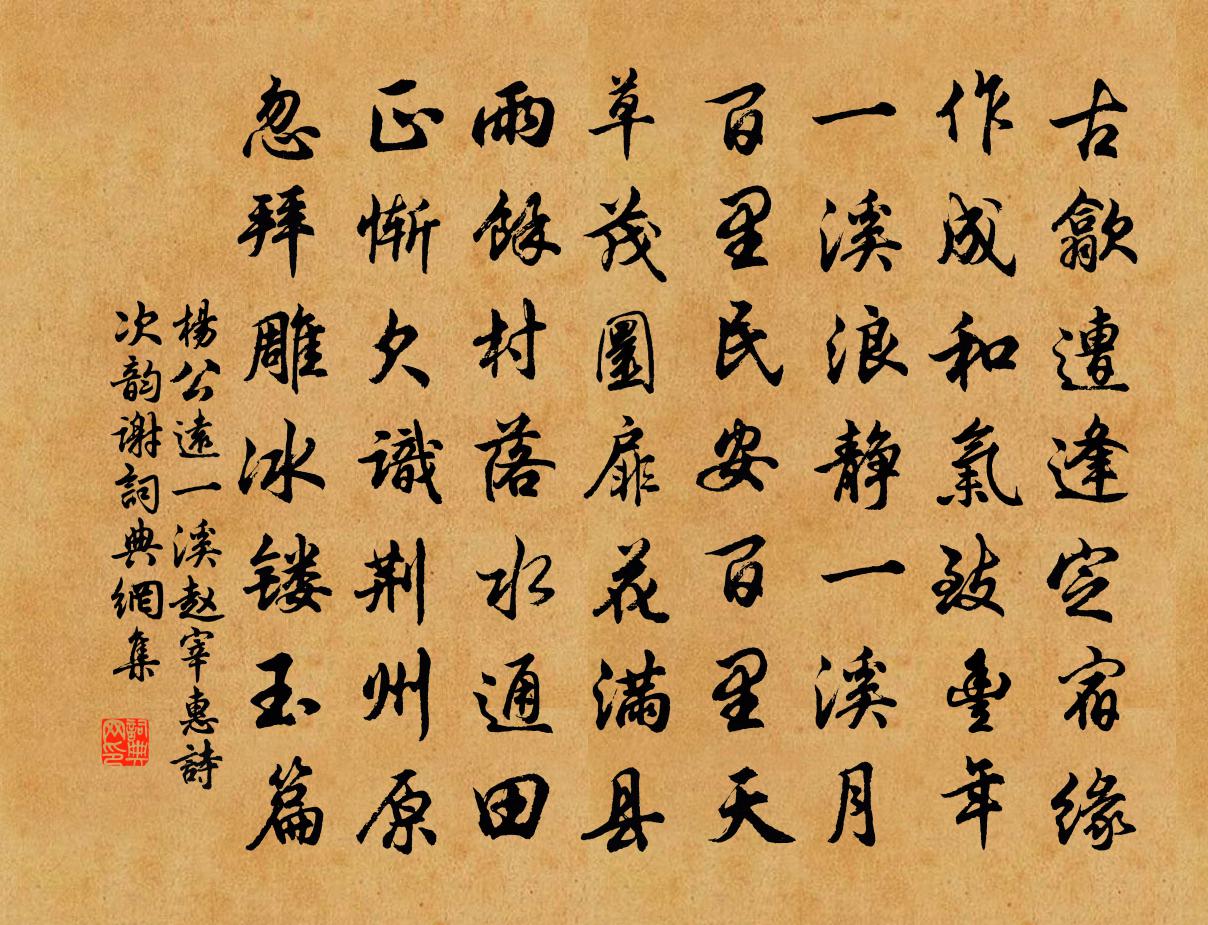 古歙遭逢定宿緣
作成和氣致豐年
一溪浪靜一溪月
百里民安百里天
草茂圜扉花滿县
雨餘村落水通田
正慚欠識荆州原
忽拜雕冰镂玉篇
楊公遠一溪赵宰惠詩
次韵謝詞典網集
詞典网印